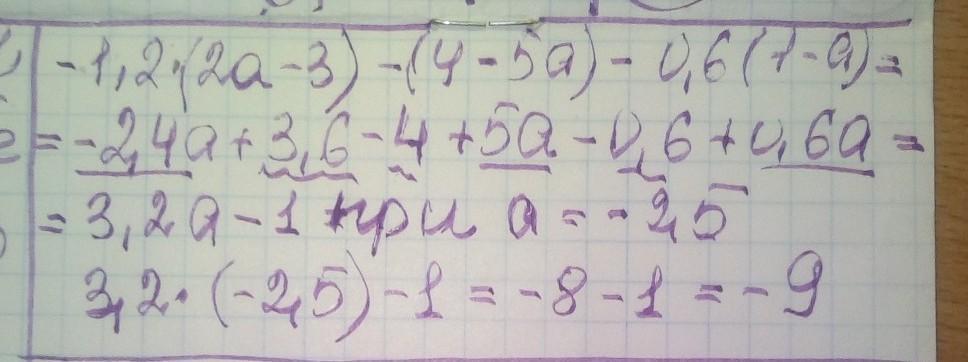 -1,2·(2a-3)-(4-5a)-0,6(1-a)=
=-2,4a+3,6-4+5a-0,6+0,6a=
=3,2a-1 при a=-2,5
3,2·(-2,5)-1=-8-1=-9